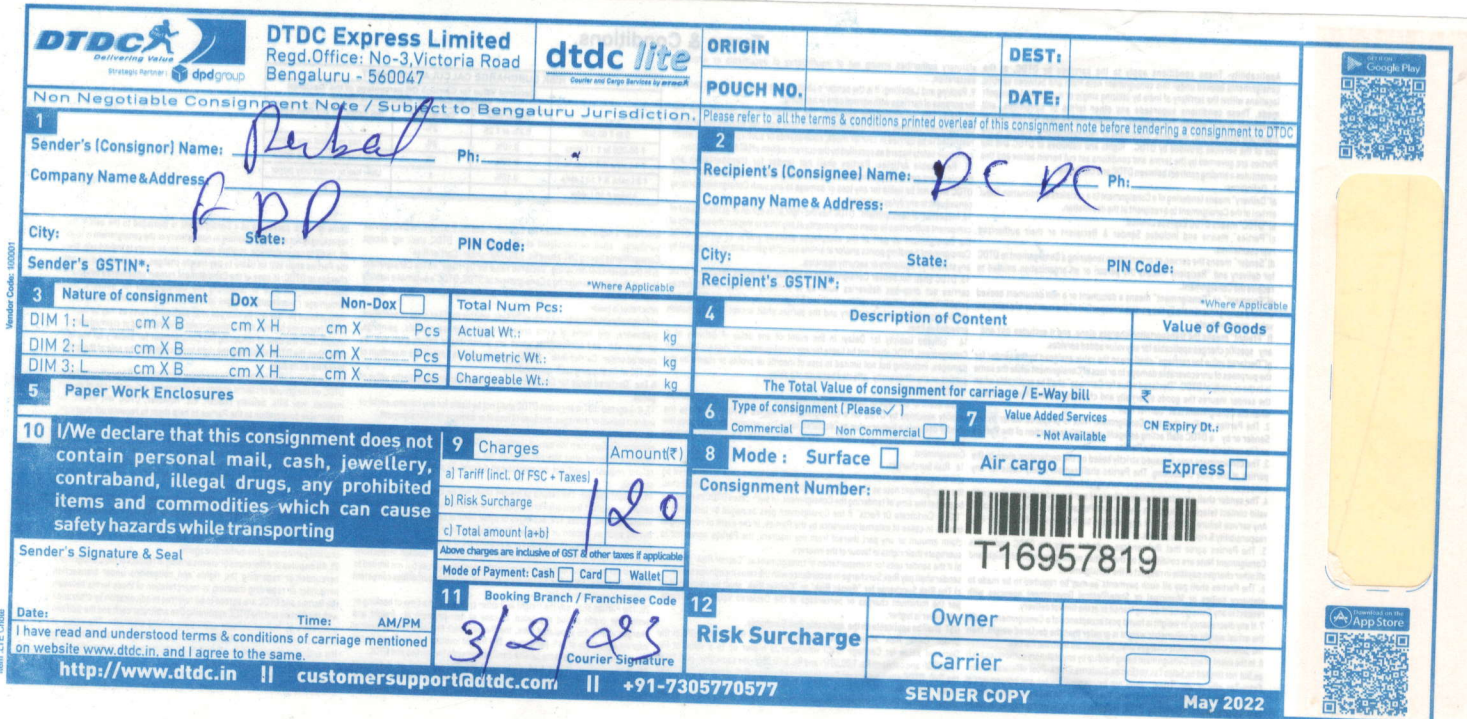 DTDC
Delivering Value
Strategic Partner: dpdgroup
DTDC Express Limited
Regd.Office: No-3,Victoria Road
Bengaluru - 560047
dtdc lite
Courier and Cargo Services by DTDC
ORIGIN
DEST:
POUCH NO.
DATE:
GET IT ON
Google Play
Non Negotiable Consignment Note / Subject to Bengaluru Jurisdiction.
Please refer to all the terms & conditions printed overleaf of this consignment note before tendering a consignment to DTDC
1
Sender's (Consignor) Name:
Ph:
Company Name & Address:
City: State: PIN Code:
Sender's GSTIN*:
*Where Applicable
2
Recipient's (Consignee) Name: DC DC Ph:
Company Name & Address:
City: State: PIN Code:
Recipient's GSTIN*:
*Where Applicable
Vendor Code: 100001
3 Nature of consignment Dox Non-Dox
DIM 1: L cm X B cm X H cm X Pcs
DIM 2: L cm X B cm X H cm X Pcs
DIM 3: L cm X B cm X H cm X Pcs
Total Num Pcs:
Actual Wt.: kg
Volumetric Wt.: kg
Chargeable Wt.: kg
4 Description of Content Value of Goods
The Total Value of consignment for carriage / E-Way bill ₹
5 Paper Work Enclosures
6 Type of consignment ( Please ✓ )
Commercial Non Commercial
7 Value Added Services
- Not Available
CN Expiry Dt.:
8 Mode : Surface Air cargo Express
Consignment Number:
T16957819
10 I/We declare that this consignment does not
contain personal mail, cash, jewellery,
contraband, illegal drugs, any prohibited
items and commodities which can cause
safety hazards while transporting
Sender's Signature & Seal
Date: Time: AM/PM
I have read and understood terms & conditions of carriage mentioned
on website www.dtdc.in, and I agree to the same.
9 Charges Amount(₹)
a) Tariff (incl. Of FSC + Taxes)
b) Risk Surcharge 120
c) Total amount (a+b)
Above charges are inclusive of GST & other taxes if applicable
Mode of Payment: Cash Card Wallet
11 Booking Branch / Franchisee Code
3/2/23
Courier Signature
12
Risk Surcharge
Owner
Carrier
Download on the
App Store
http://www.dtdc.in || customersupport@dtdc.com || +91-7305770577
SENDER COPY
May 2022